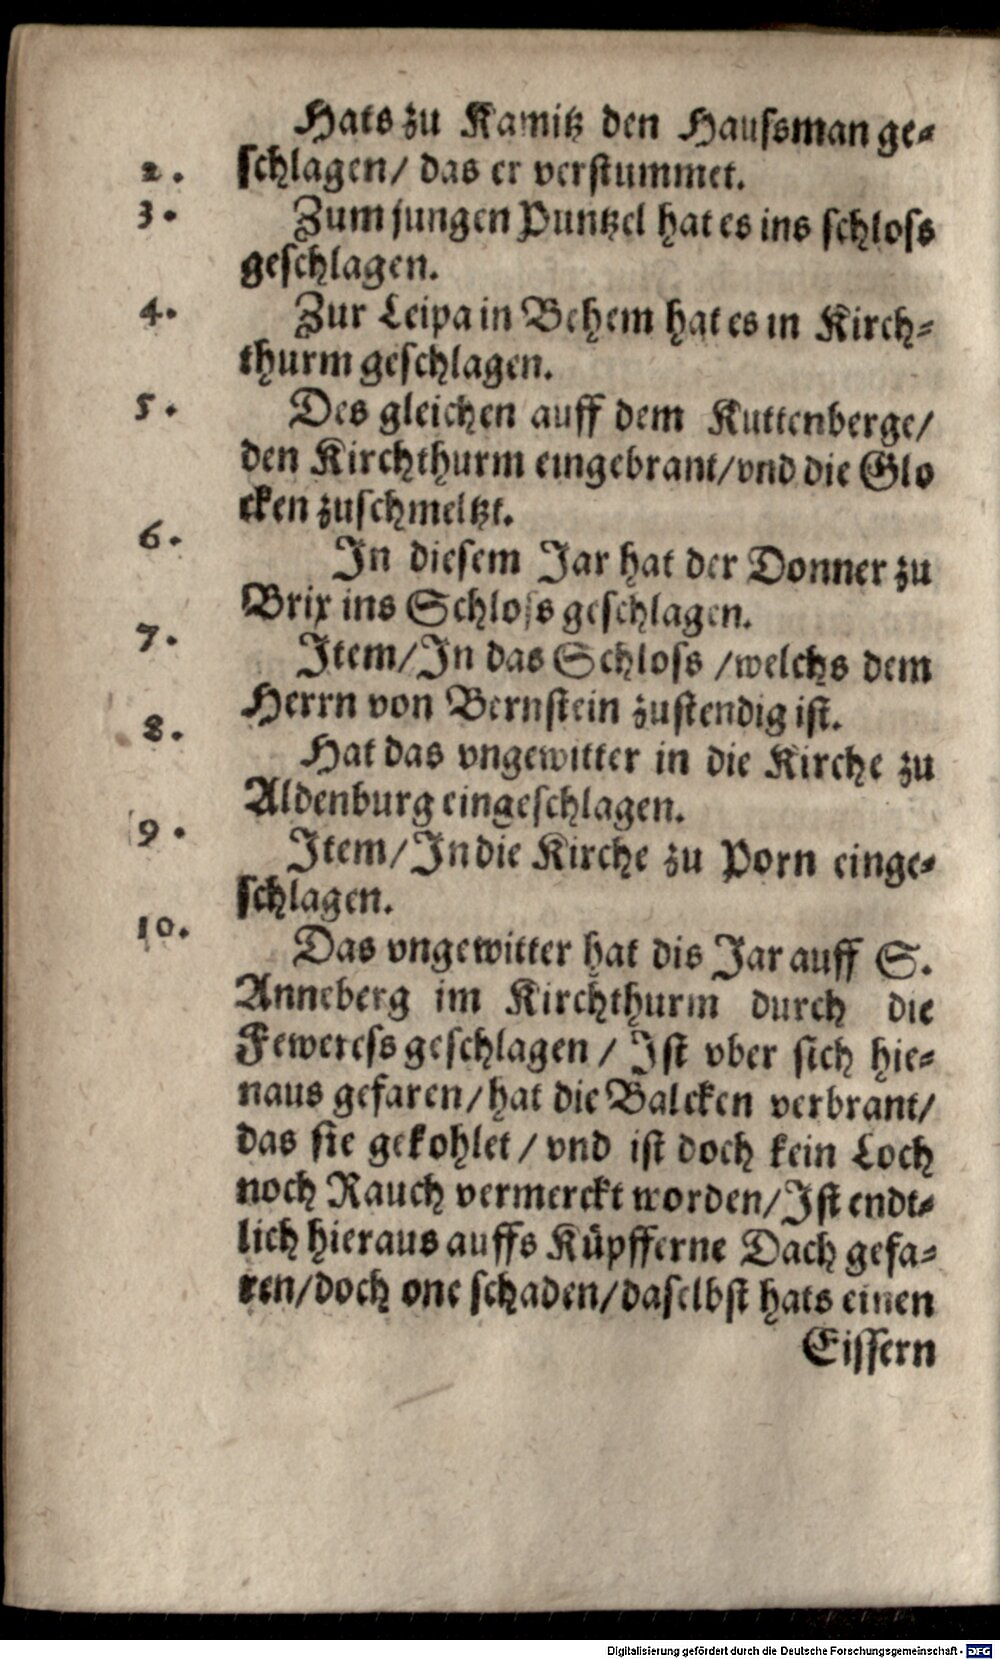 Hats zu Kamitz den Haussman ge-
2. schlagen/ das er verstummet.
3. Zum jungen Puntzel hat es ins schloss
geschlagen.
4. Zur Leipa in Behem hat es in Kirch-
thurm geschlagen.
5. Des gleichen auff dem Kuttenberge/
den Kirchthurm eingebrant/vnd die Glo
cken zuschmeltzt.
6. In diesem Jar hat der Donner zu
Brix ins Schloss geschlagen.
7. Item/In das Schloss /welchs dem
Herrn von Bernstein zustendig ist.
8. Hat das vngewitter in die Kirche zu
Aldenburg eingeschlagen.
9. Item/In die Kirche zu Porn einge-
schlagen.
10. Das vngewitter hat dis Jar auff S.
Anneberg im Kirchthurm durch die
Feweress geschlagen / Ist vber sich hie-
naus gefaren/hat die Balcken verbrant/
das sie gekohlet / vnd ist doch kein Loch
noch Rauch vermerckt worden/Ist endt-
lich hieraus auffs Küpfferne Dach gefa-
ren/doch one schaden/daselbst hats einen
Eissern
Digitalisierung gefördert durch die Deutsche Forschungsgemeinschaft - DFG